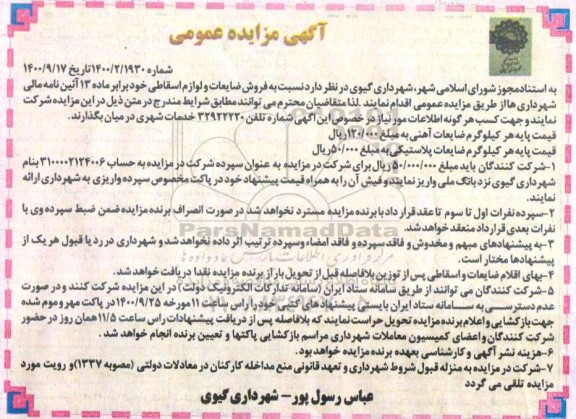 آگهی مزایده عمومی
شماره ۱۴۰۰/۲/۱۹۳۰تاریخ ۱۴۰۰/۹/۱۷
به استنادمجوز شورای اسلامی شهر، شهرداری گیوی در نظر دارد نسبت به فروش ضایعات و لوازم اسقاطی خود برابر ماده ۱۳ آئین نامه مالی
شهرداری ها از طریق مزایده عمومی اقدام نمایند .لذا متقاضیان محترم می توانند مطابق شرایط مندرج در متن ذیل در این مزایده شرکت
نمایند و جهت کسب هر گونه اطلاعات مورد نیاز در خصوص این آگهی شماره تلفن ۳۲۹۲۲۲۲۰ خدمات شهری در میان بگذارند.
قیمت پایه هر کیلوگرم ضایعات آهنی به مبلغ ۱۲۰/۰۰۰ریال
قیمت پایه هر کیلوگرم ضایعات پلاستیکی به مبلغ ۵۰/۰۰۰ریال
۱-شرکت کنندگان باید مبلغ ۵۰/۰۰۰/۰۰۰ ریال برای شرکت در مزایده به عنوان سپرده شرکت در مزایده به حساب ۳۱۰۰۰۰۲۱۲۴۰۰۶ بنام
شهرداری گیوی نزد بانک ملی واریز نمایند و فیش آن را به همراه قیمت پیشنهاد خود در پاکت مخصوص سپرده واریزی به شهرداری ارائه
نمایند.
۲-سپرده نفرات اول تا سوم تا عقد قرارداد با برنده مزایده مسترد نخواهد شد در صورت انصراف برنده مزایده ضمن ضبط سپرده وی با
نفرات بعدی قرارداد منعقد خواهد شد.
۳-به پیشنهادهای مبهم و مخدوش و فاقد سپرده و فاقد امضاء وسپرده ترتیب اثر داده نخواهد شد و شهرداری در رد یا قبول هر یک از
پیشنهادها مختار است.
۴-بهای اقلام ضایعات و اسقاطی پس از توزین بلافاصله قبل از تحویل بار از برنده مزایده نقدا دریافت خواهد شد.
۵-شرکت کنندگان می توانند از طریق سامانه ستاد ایران (سامانه تدارکات الکترونیک دولت) در این مزایده شرکت کنند و در صورت
عدم دسترسی به سامانه ستاد ایران بایستی پیشنهادهای کتبی خود را راس ساعت ۱۱ مورخه ۱۴۰۰/۹/۲۵ در پاکت مهر و موم شده
جهت بازگشایی و اعلام برنده مزایده تحویل حراست نمایند که بلافاصله پس از دریافت پیشنهادات راس ساعت ۱۱/۵ همان روز در حضور
شرکت کنندگان و اعضای کمیسیون معاملات شهرداری مراسم بازگشایی پاکتها و تعیین برنده انجام خواهد شد .
۶-هزینه نشر آگهی و کارشناسی بعهده برنده مزایده خواهد بود.
۷-شرکت در مزایده به منزله قبول شروط شهرداری و تعهد قانونی منع مداخله کارکنان در معادلات دولتی (مصوبه ۱۳۳۷) و رویت مورد
مزایده تلقی می گردد
عباس رسول پور- شهرداری گیوی
ParsNamadData